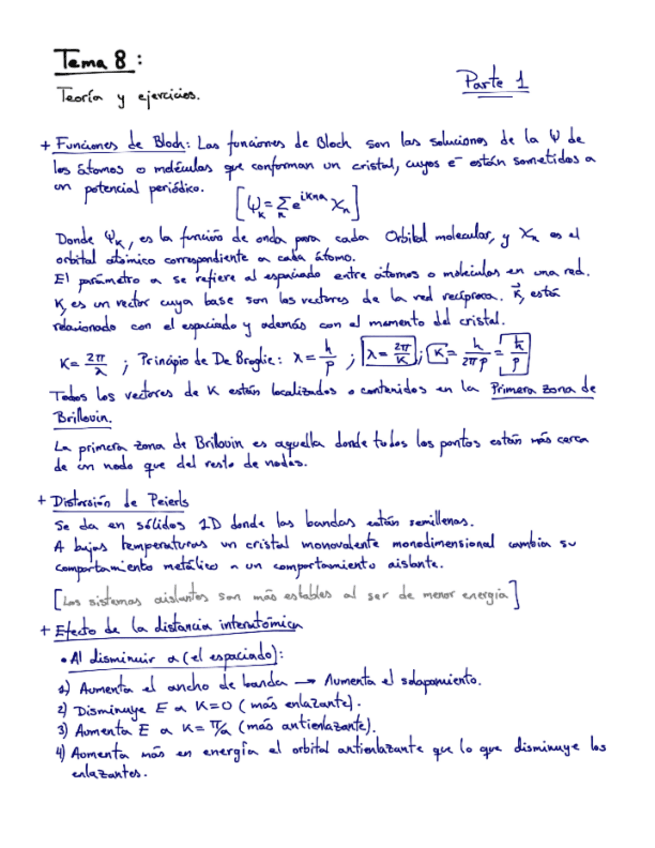 Tema 8:
Parte 1
Teoría y ejercicios.
+ Funciones de Bloch: Las funciones de Bloch son las soluciones de la Ψ de
los átomos o moléculas que conforman un cristal, cuyos e⁻ están sometidos a
un potencial periódico.
[Ψ_K = Σ_n e^{iKna} χ_n]
Donde Ψ_K, es la función de onda para cada Orbital molecular, y χ_n es el
orbital atómico correspondiente a cada átomo.
El parámetro a se refiere al espaciado entre átomos o moléculas en una red.
K, es un vector cuya base son los vectores de la red recíproca. K⃗, está
relacionado con el espaciado y además con el momento del cristal.
K = 2π/λ ; Principio de De Broglie: λ = h/p ; λ = 2π/K ; K = h/2πp = ħ/p
Todos los vectores de K están localizados o contenidos en la Primera zona de
Brillouin.
La primera zona de Brilouin es aquella donde todos los puntos están más cerca
de un nodo que del resto de nodos.
+ Distorsión de Peierls
Se da en sólidos 1D donde las bandas están semillenas.
A bajas temperaturas un cristal monovalente monodimensional cambia su
comportamiento metálico a un comportamiento aislante.
[Los sistemas aislantes son más estables al ser de menor energía]
+ Efecto de la distancia interatómica
• Al disminuir a (el espaciado):
1) Aumenta el ancho de banda → Aumenta el solapamiento.
2) Disminuye E a K=0 (más enlazante).
3) Aumenta E a K= π/a (más antienlazante).
4) Aumenta más en energía el orbital antienlazante que lo que disminuye los
enlazantes.